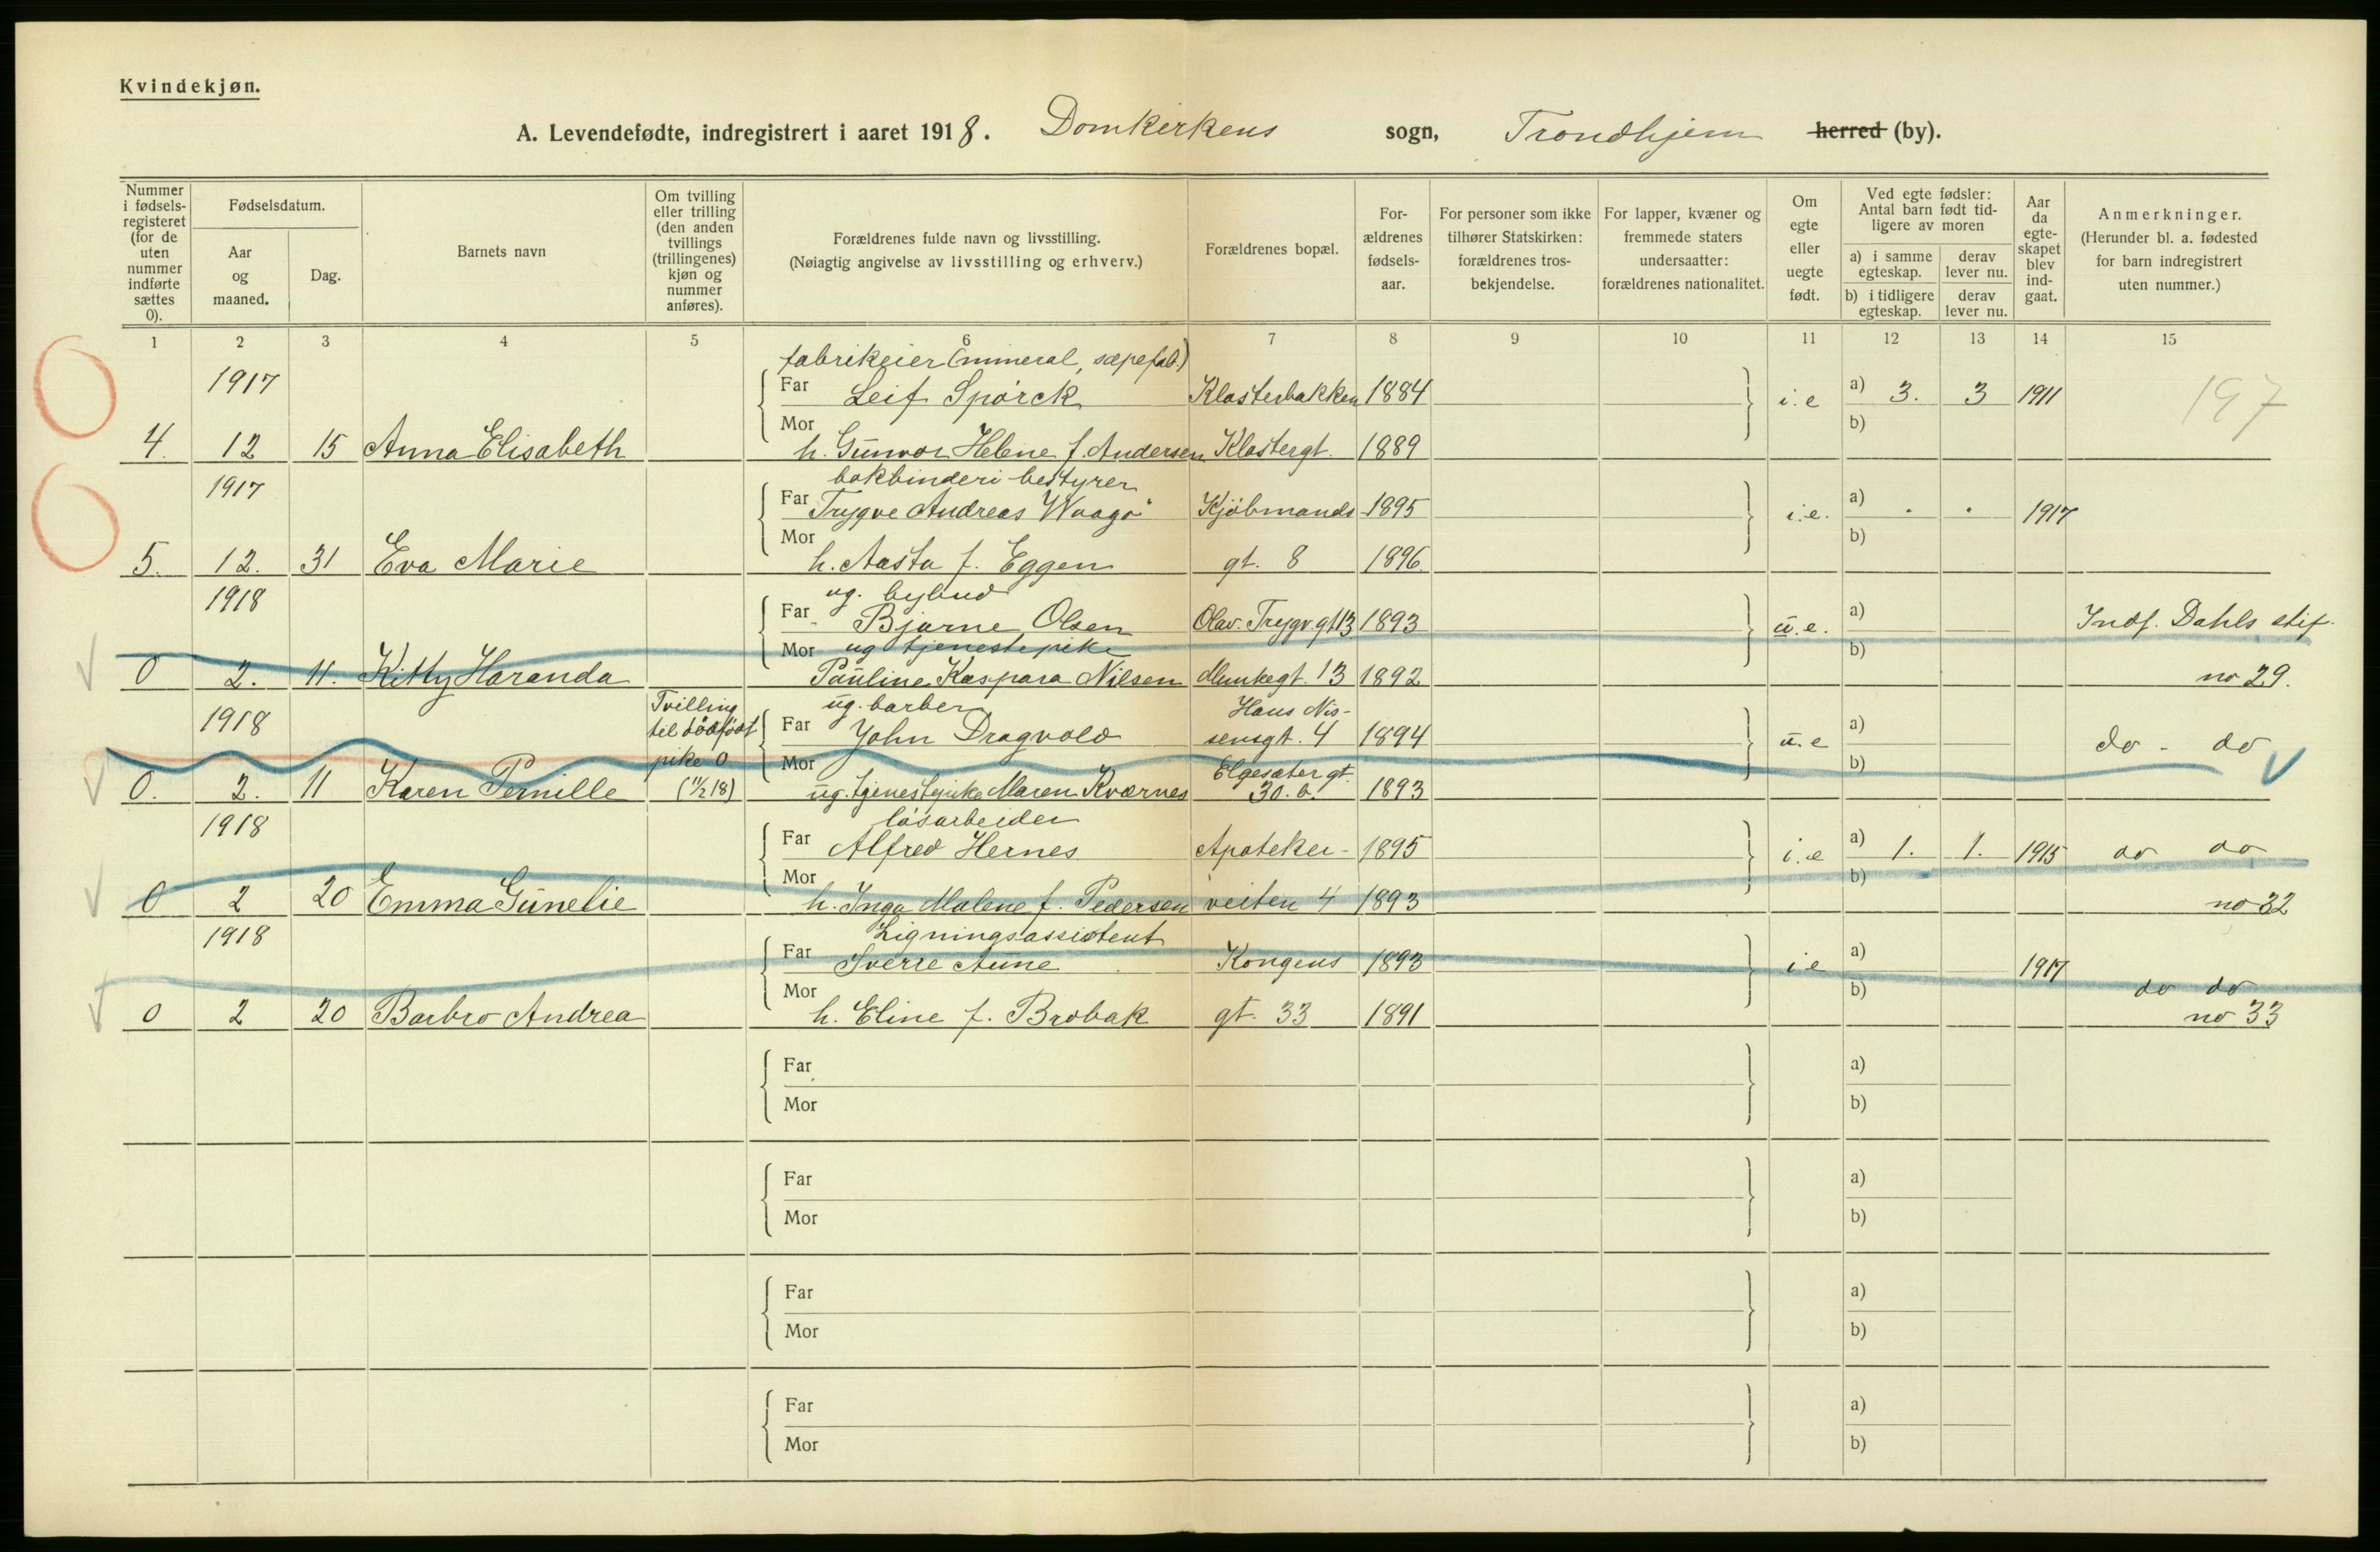 Kvindekjøn.
A. Levendefødte, indregistrert i aaret 1918. Domkirkens sogn, Trondhjem herred (by).
Nummer i fødsels-registeret (for de uten nummer indførte sættes 0).
Fødselsdatum.
Aar og maaned.
Dag.
Barnets navn
Om tvilling eller trilling (den anden tvillings (trillingenes) kjøn og nummer anføres).
Forældrenes fulde navn og livsstilling.
(Nøiagtig angivelse av livsstilling og erhverv.)
Forældrenes bopæl.
For-ældrenes fødsels-aar.
For personer som ikke tilhører Statskirken: forældrenes tros-bekjendelse.
For lapper, kvæner og fremmede staters undersaatter: forældrenes nationalitet.
Om egte eller uegte født.
Ved egte fødsler: Antal barn født tid-ligere av moren
a) i samme egteskap.
derav lever nu.
b) i tidligere egteskap.
derav lever nu.
Aar da egte-skapet blev ind-gaat.
Anmerkninger.
(Herunder bl. a. fødested for barn indregistrert uten nummer.)
1 2 3 4 5 6 7 8 9 10 11 12 13 14 15
fabrikeier (mineral, sæpefab.)
1917 Far Leif Spørck Klosterbakken 1884 i.e a) 3. 3 1911 197
Mor b)
4. 12 15 Anna Elisabeth h. Gunvor Helene f. Andersen Klostergt. 1889
bokbinderi-bestyrer
1917 Far Trygve Andreas Waagø Kjøbmands 1895 i.e. a) . . 1917
Mor b)
5. 12. 31 Eva Marie h. Aasta f. Eggen gt. 8 1896.
ug. bybud
1918 Far Bjarne Olsen Olav. Trygv.gt 13 1893 u.e. a) Indf. Dahls stif.
Mor ug tjenestepike b)
0 2. 11. Kitty Haranda Pauline Kaspara Nilsen Munkegt. 13 1892 no 29.
Tvilling ug. barber Hans Nis-
1918 til dødfødt Far John Dragvold sensgt. 4 1894 u.e a) do - do
pike 0 Mor Elgesæter gt. b)
0. 2. 11 Karen Pernille (11/2 18) ug. tjenestepike Maren Kværnes 30. b. 1893
løsarbeider
1918 Far Alfred Hernes Apoteker- 1895 i.e a) 1. 1. 1915 do do
Mor b)
0 2 20 Emma Gunelie h. Inga Malene f. Pedersen veiten 4 1893 no 32
Ligningsassistent
1918 Far Sverre Aune Kongens 1893 i.e a) 1917
Mor b) do do
0 2 20 Barbro Andrea h. Eline f. Brobak gt. 33 1891 no 33
Far a)
Mor b)
Far a)
Mor b)
Far a)
Mor b)
Far a)
Mor b)